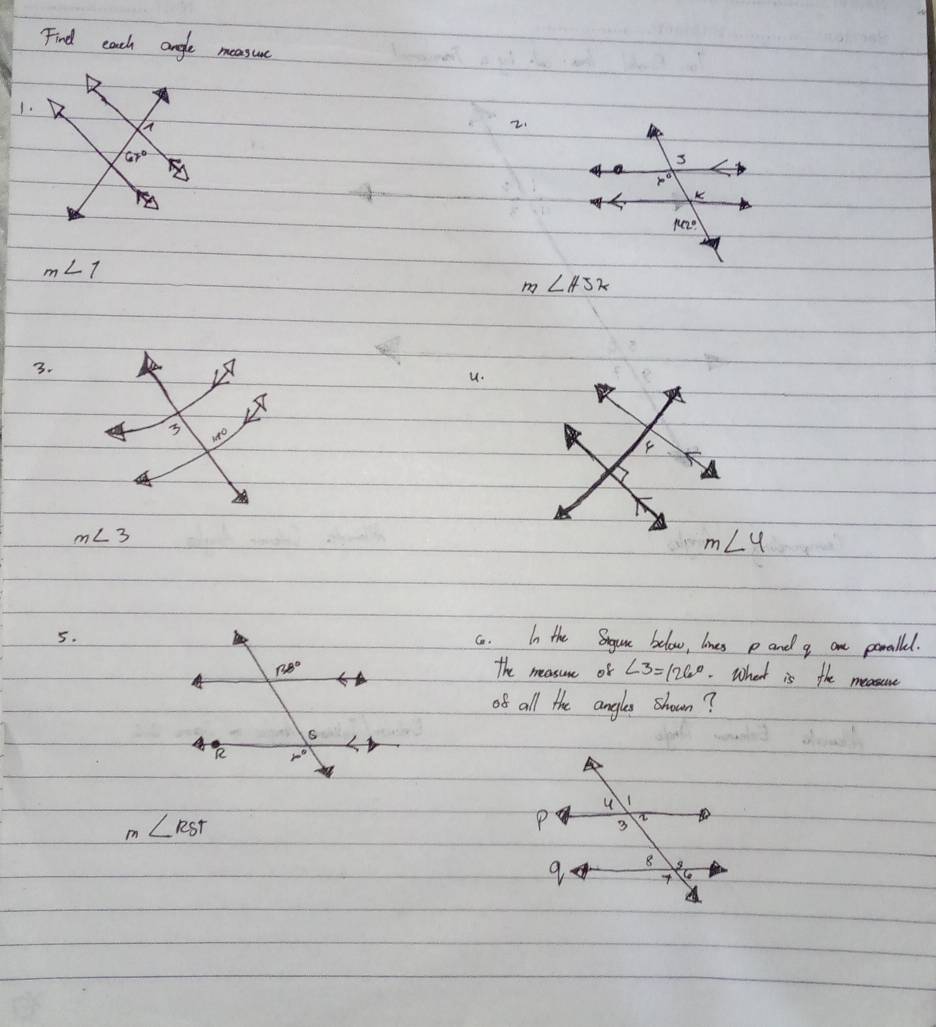 Find each angle measure
1.
1
67°
m∠1
2.
J
x°
K
142°
m ∠HJK
3.
3
m∠3
4.
4
m∠4
5.
138°
S
x°
R
m ∠RST
6. In the figure below, lines p and q are parallel.
The measure of ∠3=126°. What is the measure
of all the angles shown?
4 1
p
3 2
8 5
q
7 6